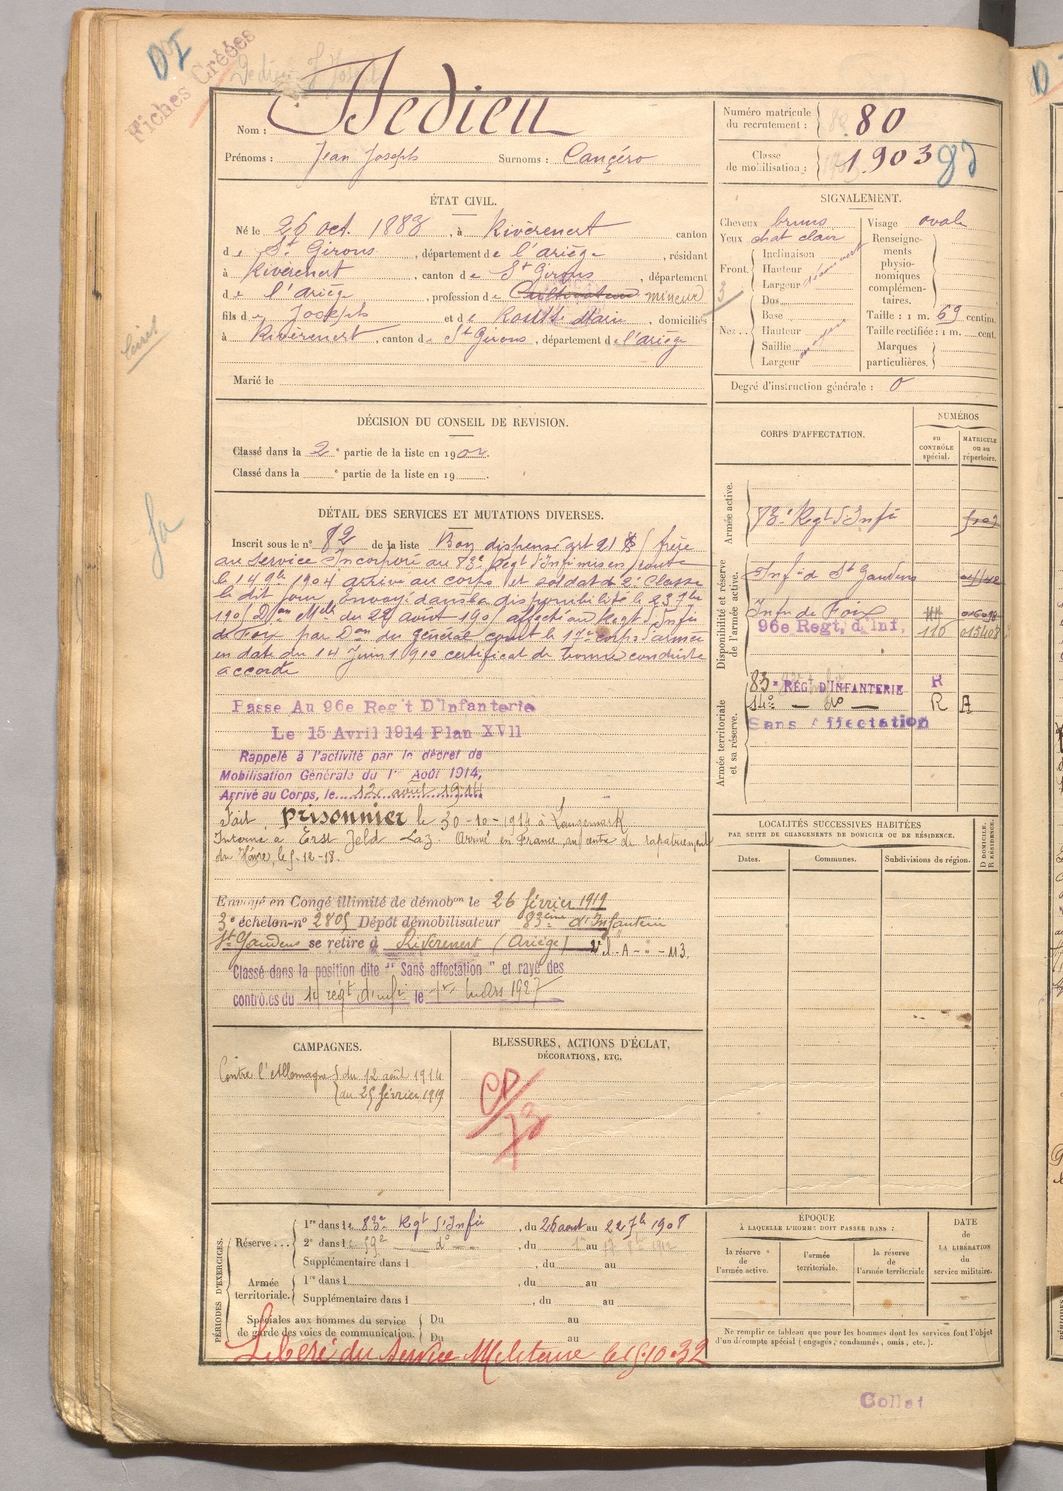 DI
Fiches Créées
Dedieu J Joseph
Nom : Dedieu
Prénoms : Jean Joseph Surnoms : Cançéro
Numéro matricule du recrutement : 80
Classe de mobilisation : 1903
ÉTAT CIVIL.
Né le 26 oct. 1883, à Rivèrenert canton
de St Girons, département de l'ariège, résidant
à Rivèrenert, canton de St Girons, département
de l'ariège, profession de Cultivateur mineur
fils de Joseph et de Marie, domiciliés
à Rivèrenert, canton de St Girons, département de l'ariège
Marié le
SIGNALEMENT.
Cheveux bruns Visage ovale
Yeux chat clair Renseigne-
ments
physio-
nomiques
complémen-
taires.
Front. Inclinaison
Hauteur
Largeur
Nez. Dos
Base
Hauteur
Saillie
Largeur
Taille : 1 m. 69 centim.
Taille rectifiée : 1 m. cent.
Marques
particulières.
Degré d'instruction générale : 0
DÉCISION DU CONSEIL DE REVISION.
Classé dans la 2e partie de la liste en 1904.
Classé dans la e partie de la liste en 19
CORPS D'AFFECTATION.
NUMÉROS
au
CONTRÔLE
spécial.
MATRICULE
ou au
répertoire.
Armée active.
83e Regt d'Infie
Disponibilité et réserve
de l'armée active.
Infie de St Gaudens
Infie de Foix
96e Regt, d'Inf. 116 015408
Armée territoriale
et sa réserve.
83e RÉGt D'INFANTERIE R
14e — do — R A
Sans Affectation
DÉTAIL DES SERVICES ET MUTATIONS DIVERSES.
Inscrit sous le n° 82 de la liste Bon dispensé art 21 frère
au service Incorporé au 83e Regt d'Infie mis en route
le 14 9bre 1904 arrivé au corps et soldat de 2e classe
le dit jour. Envoyé dans la disponibilité le 23 7bre
affecté au Regt Infie
de Foix par Don du général comt le 17e corps d'armée
en date du 14 Juin 1910 certificat de bonne conduite
accordé
Passe Au 96e Reg't D'Infanterie
Le 15 Avril 1914 Plan XVII
Rappelé à l'activité par le décret de
Mobilisation Générale du 1er Août 1914,
Arrivé au Corps, le 12 août 1914
Fait prisonnier le 30-10-1914 à Langemark
Interné à Arrivé en France, au centre de rapatriement
du Hâvre, le 5-12-18.
Envoyé en Congé illimité de démobon le 26 février 1919
3e échelon n° 2805 Dépôt démobilisateur 83ème d'Infanterie
St Gaudens se retire à Rivèrenert (Ariège)
Classé dans la position dite " Sans affectation " et rayé des
contrôles du 14 régt d'infie le 1er Mars 1927
LOCALITÉS SUCCESSIVES HABITÉES
PAR SUITE DE CHANGEMENTS DE DOMICILE OU DE RÉSIDENCE.
Dates.
Communes.
Subdivisions de région.
D DOMICILE.
R RÉSIDENCE.
CAMPAGNES.
Contre l'Allemagne du 12 août 1914
au 25 février 1919
BLESSURES, ACTIONS D'ÉCLAT,
DÉCORATIONS, ETC.
PÉRIODES D'EXERCICES.
Réserve...
1re dans le 83e Regt d'Infie, du 26 aout au 22 7bre 1908
2e dans le 59e do, du 1er au
Supplémentaire dans l , du au
Armée
territoriale.
1re dans l , du au
Supplémentaire dans l , du au
Spéciales aux hommes du service
de garde des voies de communication.
Du au
Du au
Libéré du Service Militaire le 15.10.32
ÉPOQUE
À LAQUELLE L'HOMME DOIT PASSER DANS :
la réserve
de
l'armée active.
l'armée
territoriale.
la réserve
de
l'armée territoriale
DATE
de
LA LIBÉRATION
du
service militaire.
Ne remplir ce tableau que pour les hommes dont les services font l'objet
d'un décompte spécial (engagés, condamnés, omis, etc.).
Collat